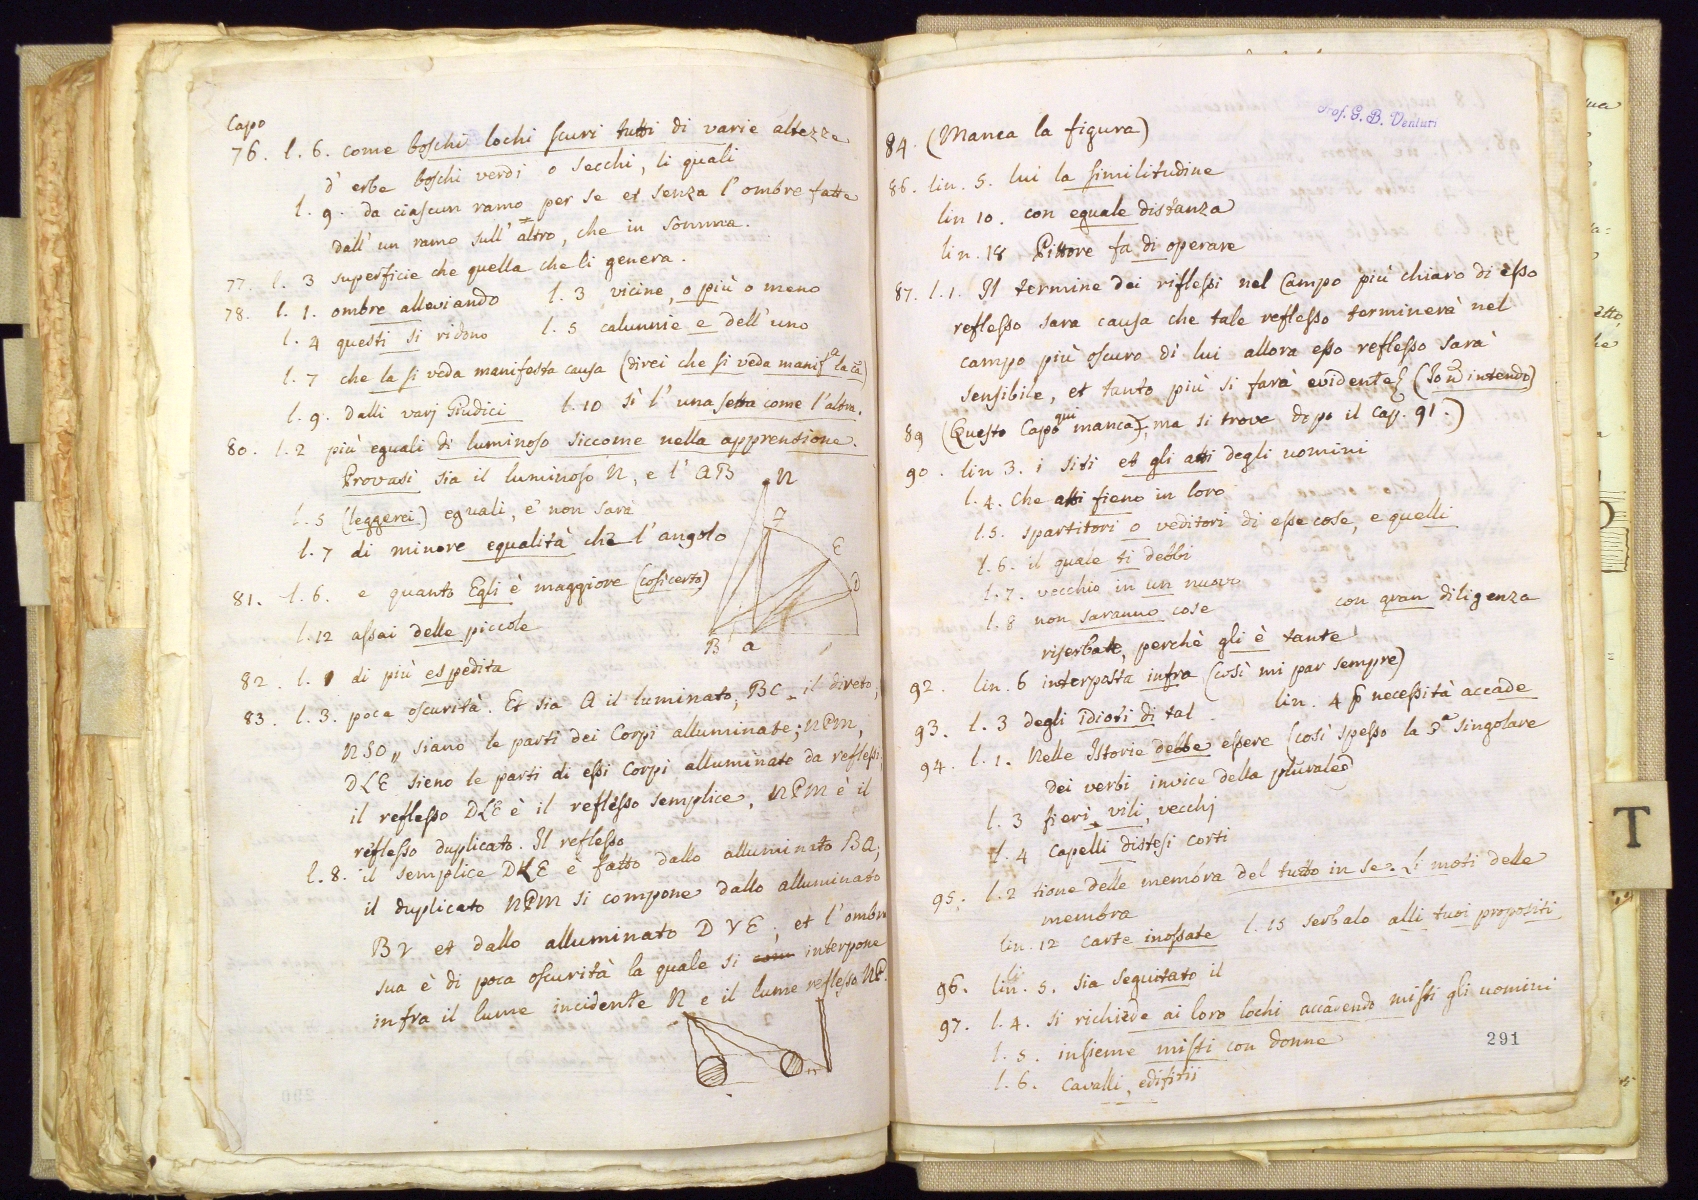 Capo
76. l. 6. come boschi lochi scuri tutti di varie altezze
d' erbe boschi verdi o secchi, li quali
l. 9. da ciascun ramo per se et senza l' ombre fatte
dall' un ramo sull' altro, che in somma.
77. l. 3 superficie che quella che li genera.
78. l. 1. ombre alleviando l. 3 vicine, o più o meno
l. 4 questi si ridono l. 5 calunnie e dell' uno
l. 7 che la si veda manifesta causa (direi che si veda manif.ª la ca)
l. 9. dalli varj Giudici l. 10 sì l' una setta come l' altra.
80. l. 2 più eguali di luminoso siccome nella apprensione.
Provasi sia il luminoso N, e l' AB
l. 5 (leggerei) eguali, e non sarà
l. 7 di minore egualità che l' angolo
81. l. 6. e quanto Egli è maggiore (così certo)
l. 12 assai delle piccole
82. l. 1 di più espedita
83. l. 3. poca oscurità. Et sia A il luminato, BC il direto,
NSO,, siano le parti dei Corpi alluminate; NPM,
DLE sieno le parti di essi Corpi alluminate da reflessi
il reflesso DLE è il reflesso semplice, NPM è il
reflesso duplicato. Il reflesso
l. 8. il semplice DLE è fatto dallo alluminato BA;
il duplicato NPM si compone dallo alluminato
BV et dallo alluminato DVE; et l' ombra
sua è di poca oscurità la quale si interpone
infra il lume incidente N e il lume reflesso NP.
N
F
E
D
B A
Prof. G. B. Venturi
84. (Manca la figura)
86. lin. 5. lui la similitudine
lin 10. con eguale distanza
lin. 18 Pittore fa di operare
87. l. 1. Il termine dei riflessi nel Campo più chiaro di esso
reflesso sara causa che tale reflesso terminerà nel
campo più oscuro di lui allora esso reflesso sarà
sensibile, et tanto più si farà evidente (Io intendo)
89 (Questo Capo qui manca, ma si trove dopo il Cap. 91.)
90. lin 3. i siti et gli atti degli uomini
l. 4. che atti fieno in loro
l. 5. spartitori o veditori di esse cose, e quelli
l. 6. il quale ti debbi
l. 7. vecchio in un nuovo
l. 8 non saranno cose con gran diligenza
riserbate, perchè gli è tante
92. lin. 6 interposta infra (così mi par sempre)
93. l. 3 degli idioti di tal lin. 4 necessità accade
94. l. 1. Nelle Istorie debbe essere (così spesso la 3ª singolare
dei verbi, invice della plurale)
l. 3 fieri, vili, vecchj
l. 4 capelli distesi corti
95. l. 2 tione delle memora del tutto in se. Li moti delle
membra
lin. 12 carte inossate l. 15 serbalo alli tuoi propositi
96. lin. 5. sia seguitato il
97. l. 4. si richiede ai loro lochi accadendo misti gli uomini
l. 5. insieme misti con donne
l. 6. cavalli, edifitii
291
T